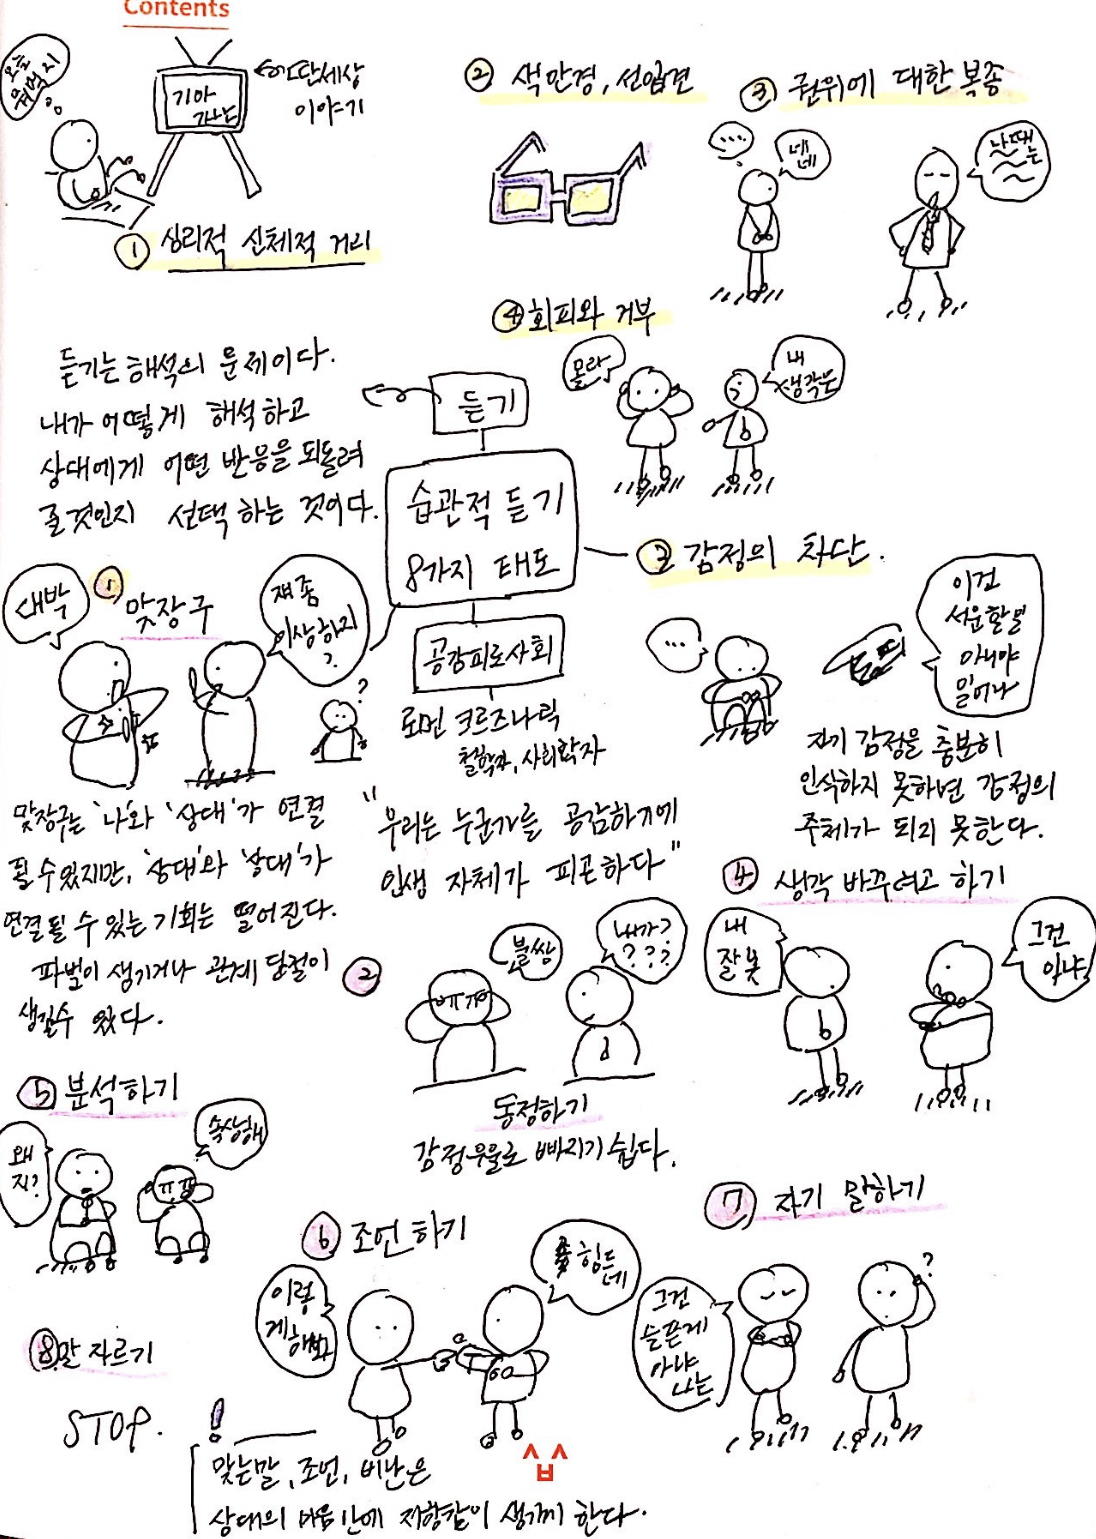 Contents
오늘
뭐먹지
기아
가나는
딴세상
이야기
① 심리적 신체적 거리
② 색안경, 선입견
③ 권위에 대한 복종
....
네
네
나때
는
④ 회피와 거부
몰라
내
생각은
듣기는 해석의 문제이다.
내가 어떻게 해석하고
상대에게 어떤 반응을 되돌려
줄것인지 선택하는 것이다.
듣기
습관적 듣기
8가지 태도
공감피로사회
로먼 크르즈나릭
철학자, 사회학자
"우리는 누군가를 공감하기에
인생 자체가 피곤하다"
① 맞장구
대박
쟤 좀
이상하지
?
?
맞장구는 '나'와 '상대'가 연결
될 수 있지만, '상대'와 '상대'가
연결 될 수 있는 기회는 떨어진다.
파벌이 생기거나 관계 단절이
생길수 있다.
②
불쌍
내가?
???
ㅠㅠ
동정하기
감정우울로 빠지기 쉽다.
③ 감정의 차단.
...
이건
서운할일
아니야
일어나
자기 감정을 충분히
인식하지 못하면 감정의
주체가 되지 못한다.
④ 생각 바꾸려고 하기
내
잘못
그건
아냐
⑤ 분석하기
왜
지?
속상해
ㅠㅠ
⑥ 조언하기
이렇
게해봐
힘드
네
⑦ 자기 말하기
그건
슬픈게
아냐
나는
?
⑧ 말 자르기
STOP.
!
맞는말, 조언, 비난은
상대의 마음안에 저항감이 생기게 한다.